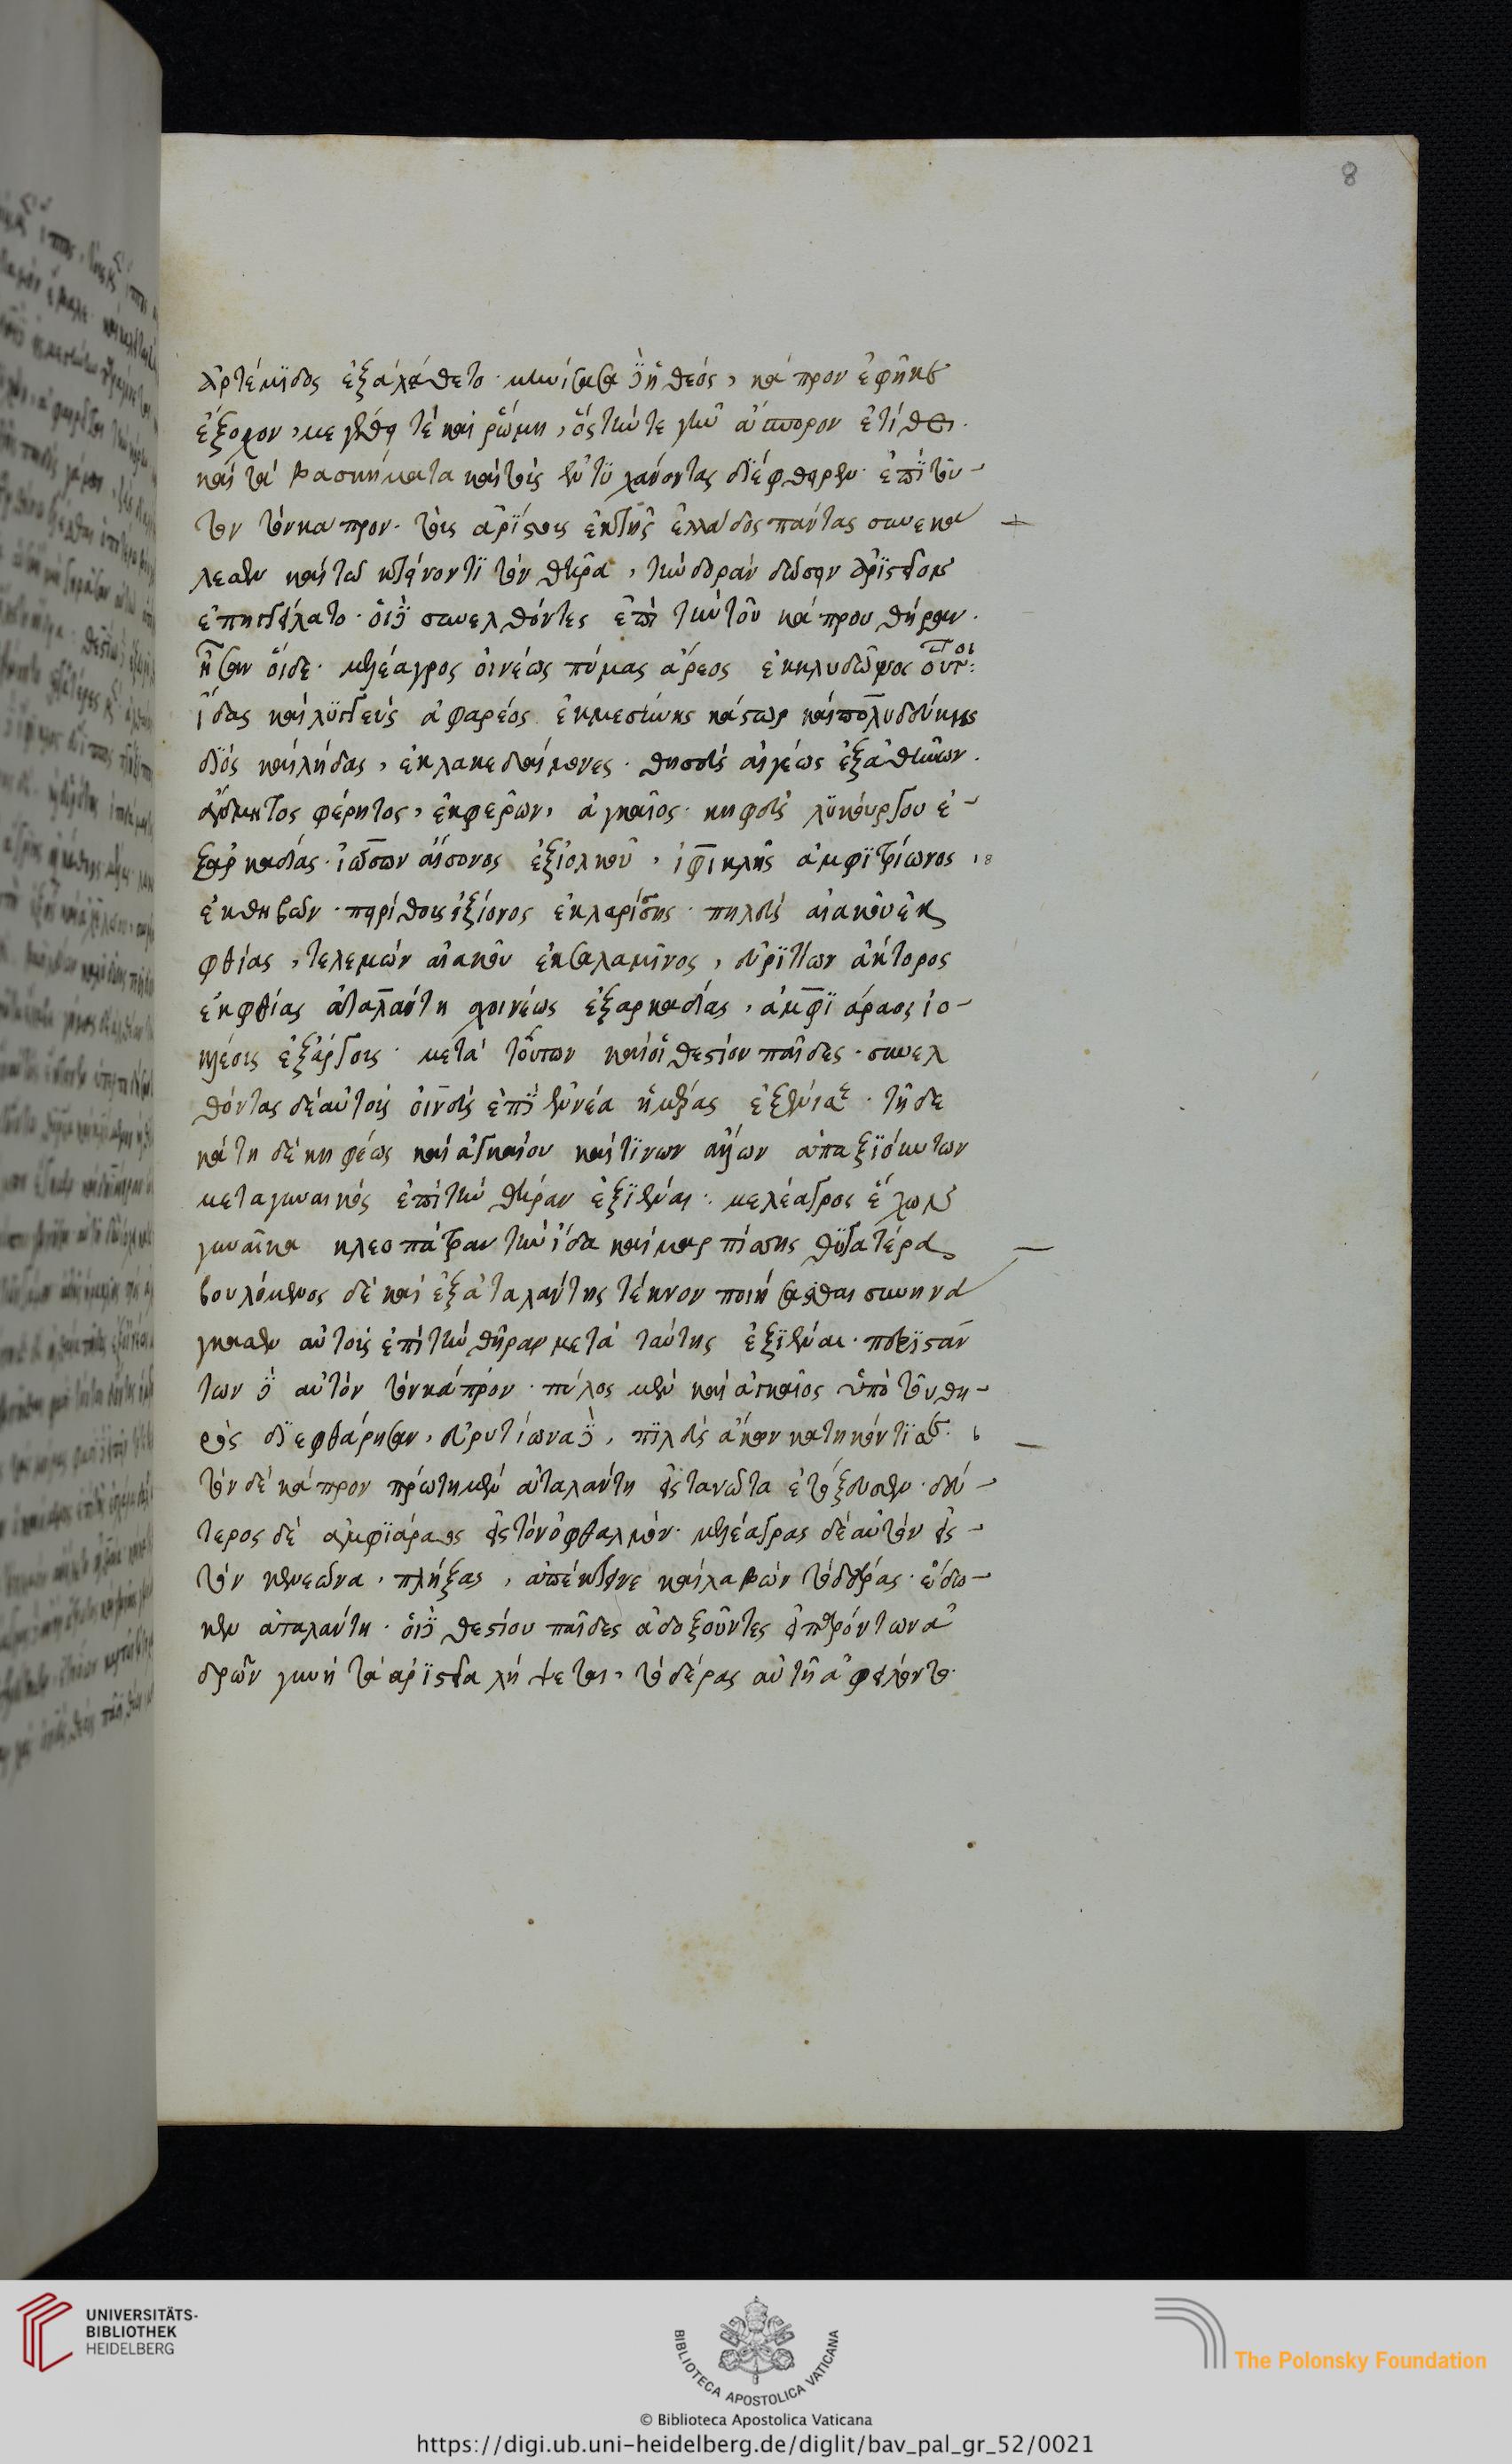 8
ἀρτέμϊδος ἐξαλάθετο· μηνίσασα δὲ ἡ θεός, κάπρον ἐφῆκε
ἔξοχον, μεγέθει τὲ καὶ ῥώμη, ὃς τήν τε γῆν ἄσπορον ἐτίθει·
καὶ τὰ βοσκήματα καὶ τοὺς ἐντϋχάνοντας δϊέφθειρεν· ἐπῒ τοῦ-
τον τὸν κάπρον· τοὺς ἀρΐστους ἐκ τῆς ἑλλάδος πάντας συνεκα
λεσεν καὶ τῶ κτείνοντϊ τὸν θῆρα, τὴν δορὰν δώσειν ἀρϊστεῖον
ἐπηγγείλατο· οἱ δὲ συνελθόντες ἐπὶ τὴν τοῦ κάπρου θήραν·
ἦσαν οἵδε· μελέαγρος οἰνέως ἄρεος ἐκ οὗτοι
ἴδας καὶ λϋγγεὺς ἀφαρέος ἐκ μεσήνης κάστωρ καὶ πολυδεύκης
δϊὸς καὶ λήδας, ἐκ λακεδαίμονες· θησεὺς αἰγέως ἐξ ἀθηνῶν·
ἄδμητος φέρητος, ἐκ φερῶν, ἀγκαῖος· κηφεὺς λϋκούργου ἐ-
ξ ἀρκαδίας· ἰάσων αἴσονος ἐξ ἰολκοῦ, ἰφικλῆς ἀμφϊτρίωνος
ἐκ θηβῶν· πειρίθους ἰξίονος ἐκ λαρίσης· πηλεὺς αἰακοῦ ἐκ
φθίας, τελεμὼν αἰακοῦ ἐκ σαλαμῖνος, εὐρϊτίων ἄκτορος
ἐκ φθίας ἀταλάντη σχοινέως ἐξ ἀρκαδίας, ἀμφϊάραος ἰο-
κλέους ἐξ ἄργους· μετὰ τούτων καὶ οἱ θεστίου παῖδες· συνελ
θόντας δὲ αὐτοὺς οἰνεὺς ἐπῒ ἐννέα ἡμέρας ἐξένισε· τῇ δε
κάτη δὲ κηφέως καὶ ἀγκαίου καὶ τϊνων ἄλλων ἀπαξϊούντων
μετα γυναικὸς ἐπὶ τὴν θήραν ἐξϊέναι· μελέαγρος ἔχων
γυναῖκα κλεοπάτραν τὴν ἴδα καὶ μαρπίσσης θϋγατέρα
βουλόμενος δὲ καὶ ἐξ ἀταλάντης τέκνον ποιήσασθαι συνηνά
γκασεν αὐτοὺς ἐπὶ τὴν θῆραν μετὰ ταύτης ἐξϊέναι· περϊστάν
των δὲ αὐτὸν τὸν κάπρον· πύλος μὲν καὶ ἀγκαῖος ὑπὸ τοῦ θη-
ρὸς δϊεφθάρησαν, εὐρυτίωνα δὲ, πϊλεὺς ἄκων κατηκόντϊσε·
τὸν δὲ κάπρον πρώτη μὲν ἀταλάντη εἰς τα νῶτα ἐτόξευσεν· δεύ-
τερος δὲ ἀμφϊάραος εἰς τὸν ὀφθαλμόν· μελέαγρας δὲ αὐτὸν εἰς
τὸν κενεῶνα, πλήξας, ἀπέκτεινε καὶ λαβὼν τὸ δέρας· ἔδω-
κεν ἀταλάντη· οἱ δὲ θεστίου παῖδες ἀδοξοῦντες εἰ παρόντων ἀ
δρῶν γυνὴ τὰ ἀρϊστεῖα λήψεται, τὸ δέρας αὐτῆ ἀφείλοντο·
UNIVERSITÄTS-
BIBLIOTHEK
HEIDELBERG
BIBLIOTECA APOSTOLICA VATICANA
The Polonsky Foundation
© Biblioteca Apostolica Vaticana
https://digi.ub.uni-heidelberg.de/diglit/bav_pal_gr_52/0021